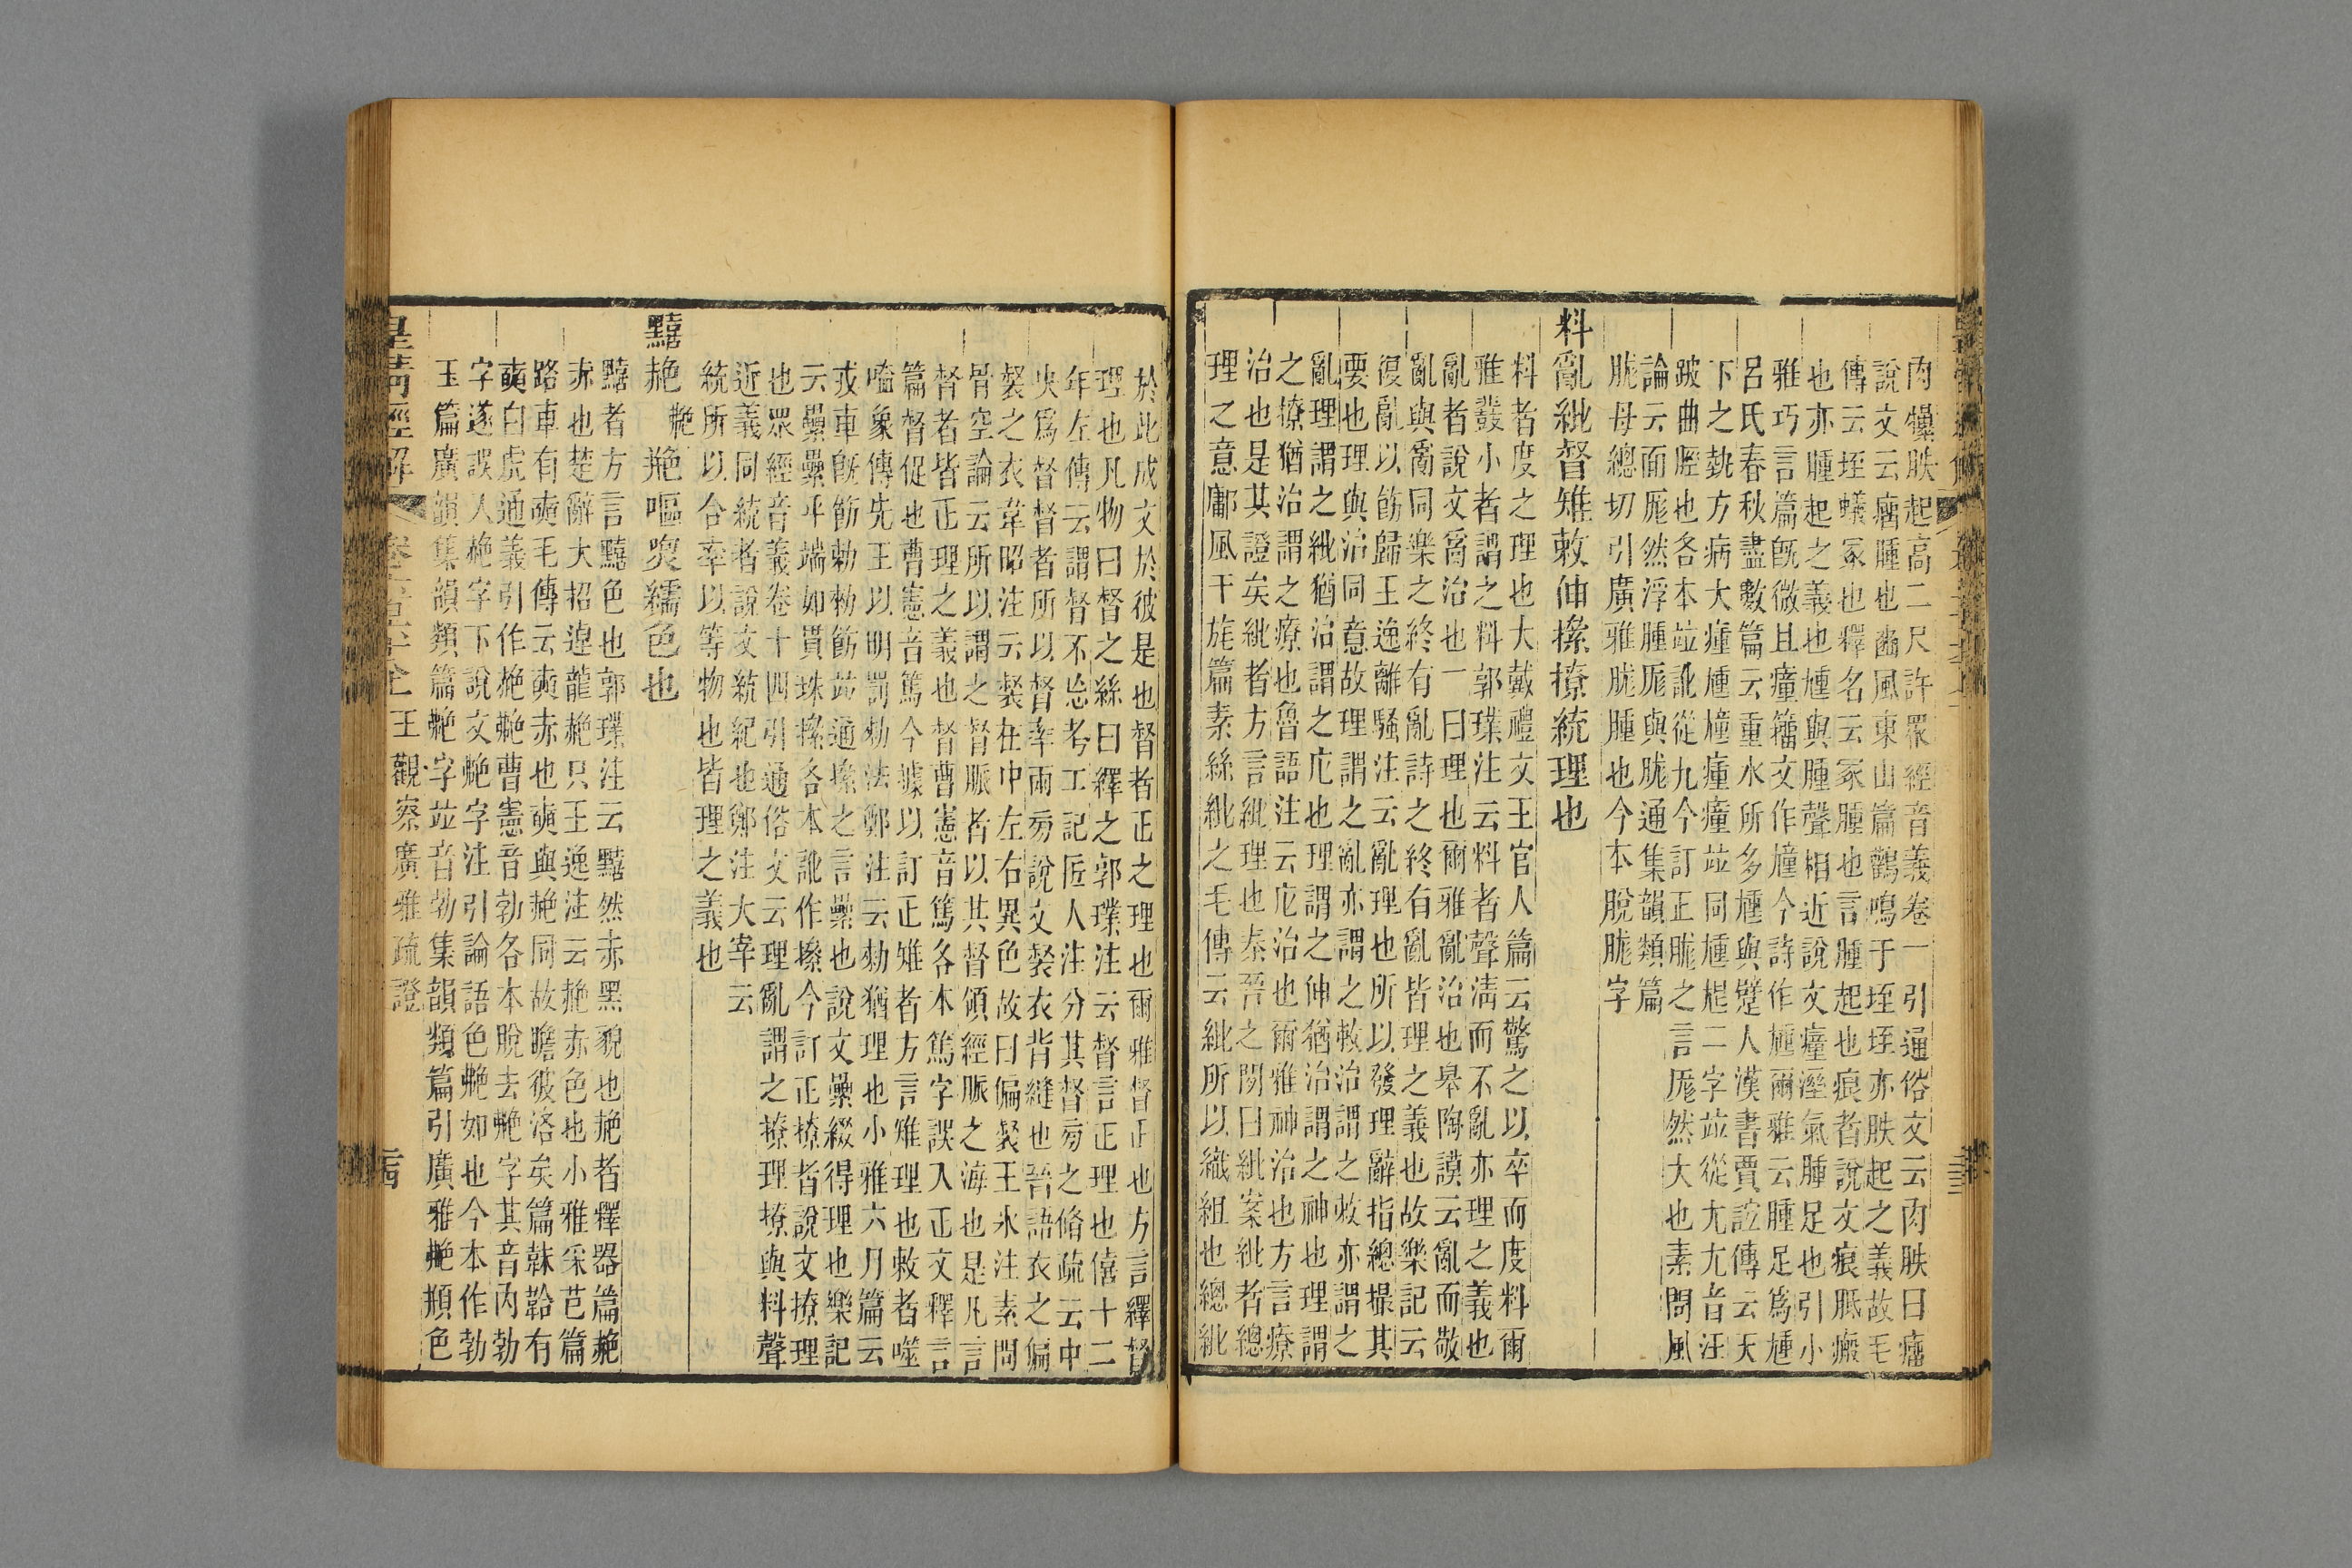 肉㿺胅起高二尺許眾經音義卷一引通俗文云肉胅曰瘤
說文云瘤腫也豳風東山篇鸛鳴于垤垤亦胅起之義故毛
傳云垤螘冢也釋名云冢腫也言腫起也痕者說文痕胝瘢
也亦腫起之義也尰與腫聲相近說文瘇溼氣腫足也引小
雅巧言篇旣微且瘇籀文作尰今詩作尰爾雅云腫足爲尰
呂氏春秋盡數篇云重水所多尰與躄人漢書賈誼傳云天
下之埶方病大瘇尰瘇竝同尰二字竝從尢尢音汪
跛曲脛也各本竝訛從九今訂正朧之言厖然大也素問風
論云面厖然浮腫厖與朧通集韻類篇
朧母總切引廣雅朧腫也今本脫朧字
料亂紕督雉敕伸撩撩統理也
料者度之理也大戴禮文王官人篇云驚之以卒而度料爾
雅鼗小者謂之料郭璞注云料者聲淸而不亂亦理之義也
亂者說文𤔔治也一曰理也爾雅亂治也皋陶謨云亂而敬
亂與𤔔同樂之終有亂詩之終有亂皆理之義也故樂記云
復亂以飭歸王逸離騷注云亂理也所以發理辭指總撮其
要也理與治同意故理謂之亂亦謂之敕治謂之敕亦謂之
亂理謂之紕猶治謂之庀也理謂之伸猶治謂之神也理謂
之撩猶治謂之療也魯語注云庀治也爾雅神治也方言療
治也是其證矣紕者方言紕理也秦晉之閒曰紕案紕者總
理之意鄘風干旄篇素絲紕之毛傳云紕所以織組也總紕
於此成文於彼是也督者正之理也爾雅督正也方言繹督
理也凡物曰督之絲曰繹之郭璞注云督言正理也僖十二
年左傳云謂督不忘考工記匠人注分其督旁之脩疏云中
央爲督督者所以督率兩旁說文裻衣背縫也晉語衣之偏
裻之衣韋昭注云裻在中左右異色故曰偏裻王冰注素問
骨空論云所以謂之督脈者以其督領經脈之海也是凡言
督者皆正理之義也督曹憲音篤各本篤字誤入正文釋言
篇督促也曹憲音篤今據以訂正雉者方言雉理也敕者噬
嗑象傳先王以明罰勑法鄭注云勑猶理也小雅六月篇云
戎車旣飭勑勑飭竝通撩之言纍也說文纍綴得理也樂記
云纍纍乎端如貫珠撩各本訛作撩今訂正撩者說文撩理
也眾經音義卷十四引通俗文云理亂謂之撩理撩與料聲
近義同統者說文統紀也鄭注大宰云
統所以合牽以等物也皆理之義也
黸赩艴赩嘔煚繻色也
黸者方言黸色也郭璞注云黸然赤黑貌也赩者釋器篇赩
赤也楚辭大招逴龍赩只王逸注云赩赤色也小雅采芑篇
路車有奭毛傳云奭赤也奭與赩同故瞻彼洛矣篇韎韐有
奭白虎通義引作赩艴曹憲音勃各本脫去艴字其音內勃
字遂誤入赩字下說文艴字注引論語色艴如也今本作勃
玉篇廣韻集韻類篇艴字竝音勃集韻類篇引廣雅艴䫄色
皇淸經解 王觀察廣雅疏證